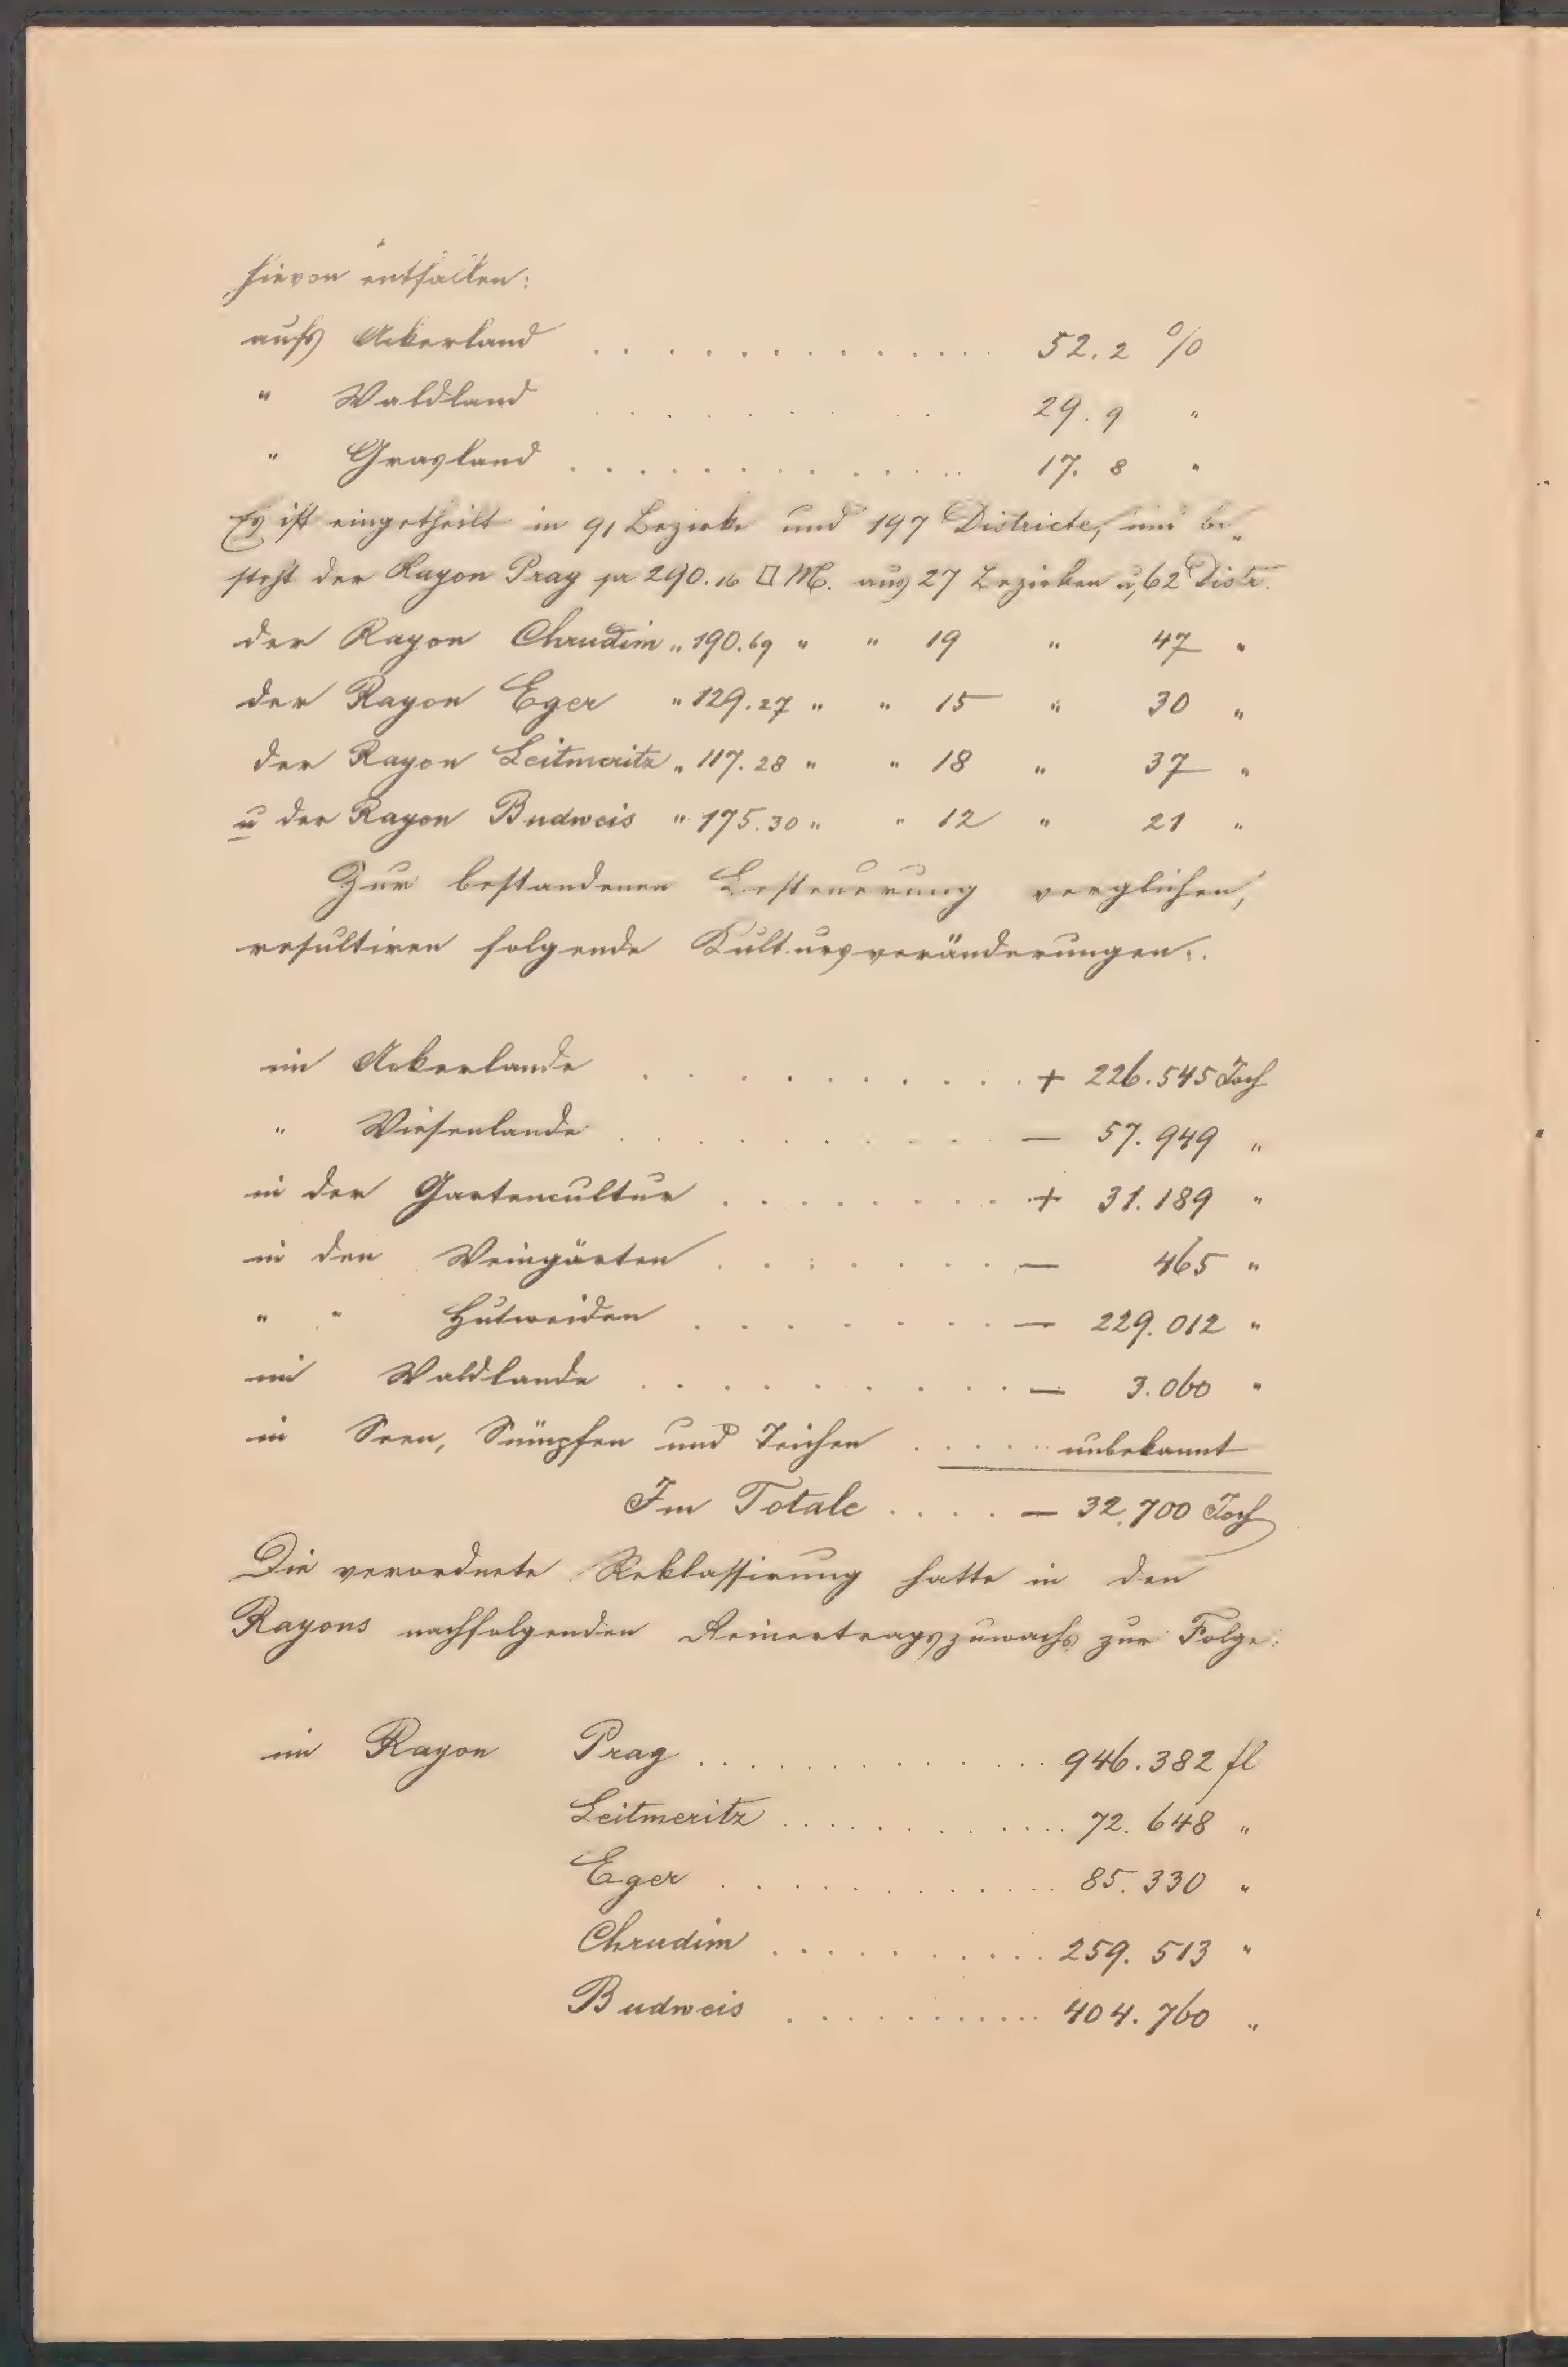 hievon entfallen:
aufs Ackerland . . . . . . . . . . . . . . 52.2 %
" Waldland . . . . . . . . . 29.9 "
" Grasland . . . . . . . . . . . . . . 17.8 "
Es ist eingetheilt in 91 Bezirke und 197 Districte, und be„
steht der Rayon Prag pr 290.16 □ M. aus 27 Bezirken u, 62 Distr.
der Rayon Chrudim „ 190.69 " " 19 " 47 "
der Rayon Eger " 129.27 " " 15 " 30 "
der Rayon Leitmeritz „ 117.28 " " 18 " 37 "
u der Rayon Budweis " 175.30 " " 12 " 21 "
Zur bestandenen Besteuerung verglichen,
resultiren folgende Kultursveränderungen:
im Ackerlande . . . . . . . . . . . + 226.545 Joch
" Wiesenlande . . . . . . . . . . — 57.949 "
in der Gartencultur . . . . . . . . . + 31.189 "
in den Weingärten . . . . . . . . — 465 "
" " Hutweiden . . . . . . . . . — 229.012 "
im Waldlande . . . . . . . . . . — 3.060 "
in Seen, Sümpfen und Teichen . . . . . unbekannt
Im Totale . . . . — 32.700 Joch
Die verordnete Reklassirung hatte in den
Rayons nachfolgenden Reinertragszuwachs zur Folge:
im Rayon Prag . . . . . . . . . . . . . . 946.382 fl
Leitmeritz . . . . . . . . . . . . . 72.648 "
Eger . . . . . . . . . . . . . 85.330 "
Chrudim . . . . . . . . . . . 259.513 "
Budweis . . . . . . . . . . . . 404.760 "